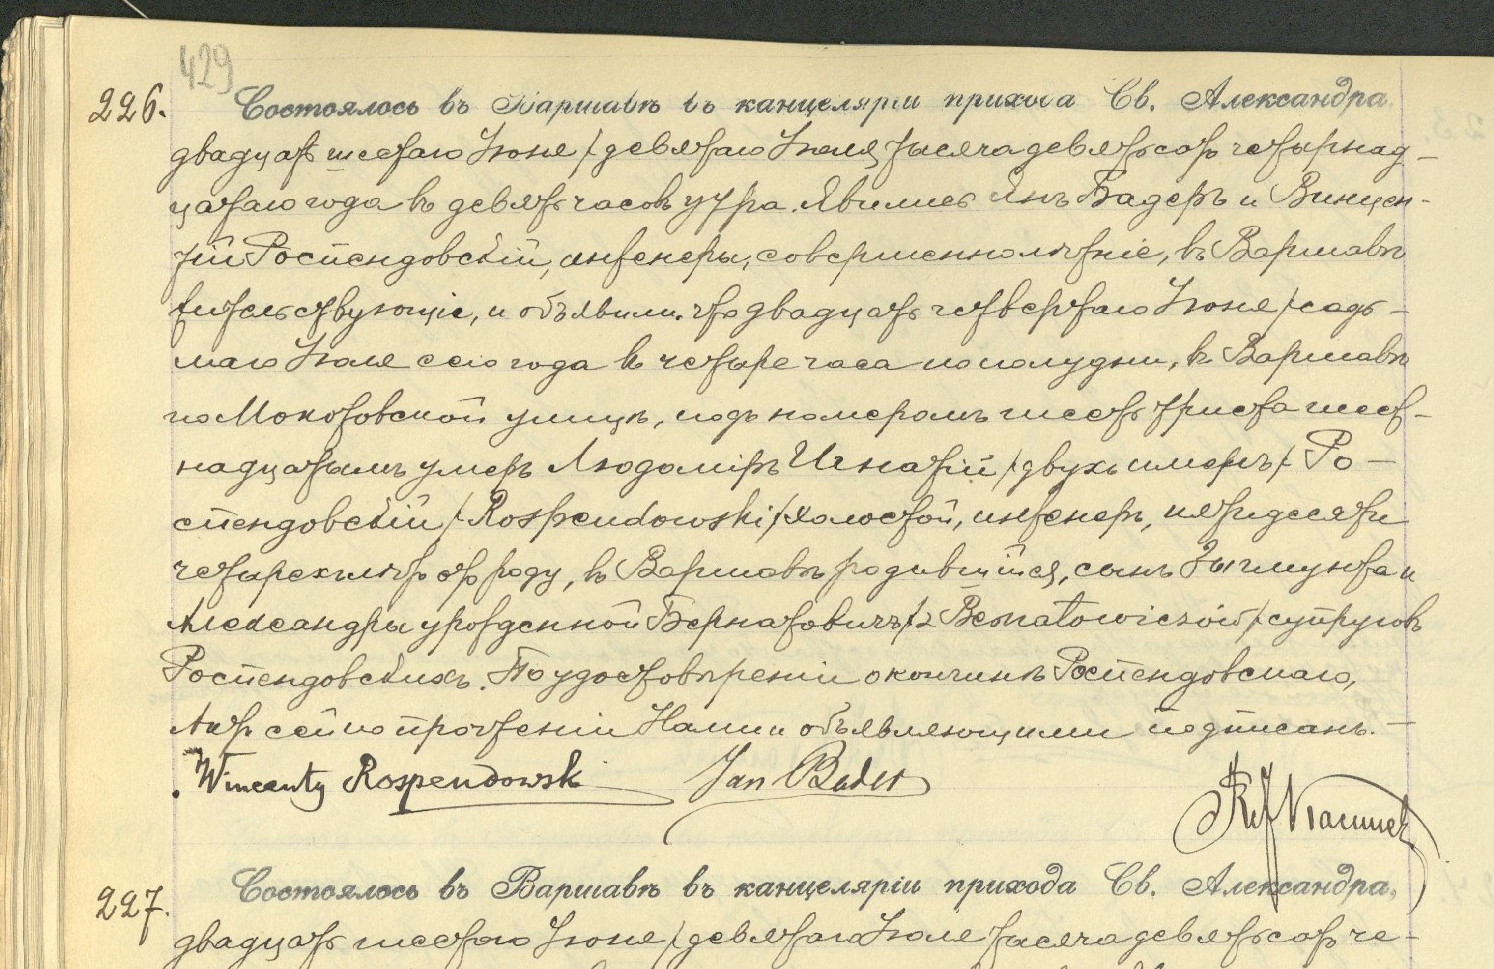 429
226. Состоялось въ Варшавѣ въ канцеляріи прихода Св. Александра
двадцать шестаго Іюня /девятаго Іюля/ тысяча девятьсотъ четырнад-
цатаго года въ девять часовъ утра. Явились Янъ Бадеръ и Винцен-
тій Роспендовскій, инженеры, совершеннолѣтніе, въ Варшавѣ
жительствующіе, и объявили, что двадцать четвертаго Іюня /седь-
маго Іюля сего года въ четыре часа пополудни, въ Варшавѣ
по Мокотовской улицѣ, подъ номеромъ шесть триста шест-
надцатымъ умеръ Людомiръ Игнатій /двухъ именъ/ Ро-
спендовскій /Rospendowski/ холостой, инженеръ, пятидесяти
четырехъ лѣтъ отъ роду, въ Варшавѣ родившійся, сынъ Зыгмунта и
Александры урожденной Бернатовичъ /z Bernatowiczów/ супруговъ
Роспендовскихъ. По удостовѣреніи о кончинѣ Роспендовскаго,
Актъ сей по прочтеніи Нами и объявляющими подписанъ.-
Wincenty Rospendowski Jan Bader
227. Состоялось въ Варшавѣ въ канцеляріи прихода Св. Александра,
двадцать шестаго Іюня /девятаго Іюля тысяча девятьсотъ че-